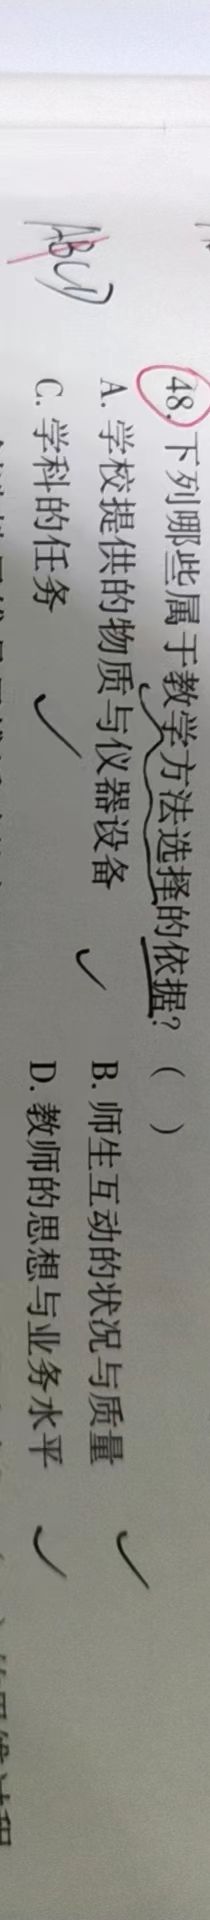 ABCD
48. 下列哪些属于教学方法选择的依据? ( )
A. 学校提供的物质与仪器设备 B. 师生互动的状况与质量
C. 学科的任务 D. 教师的思想与业务水平